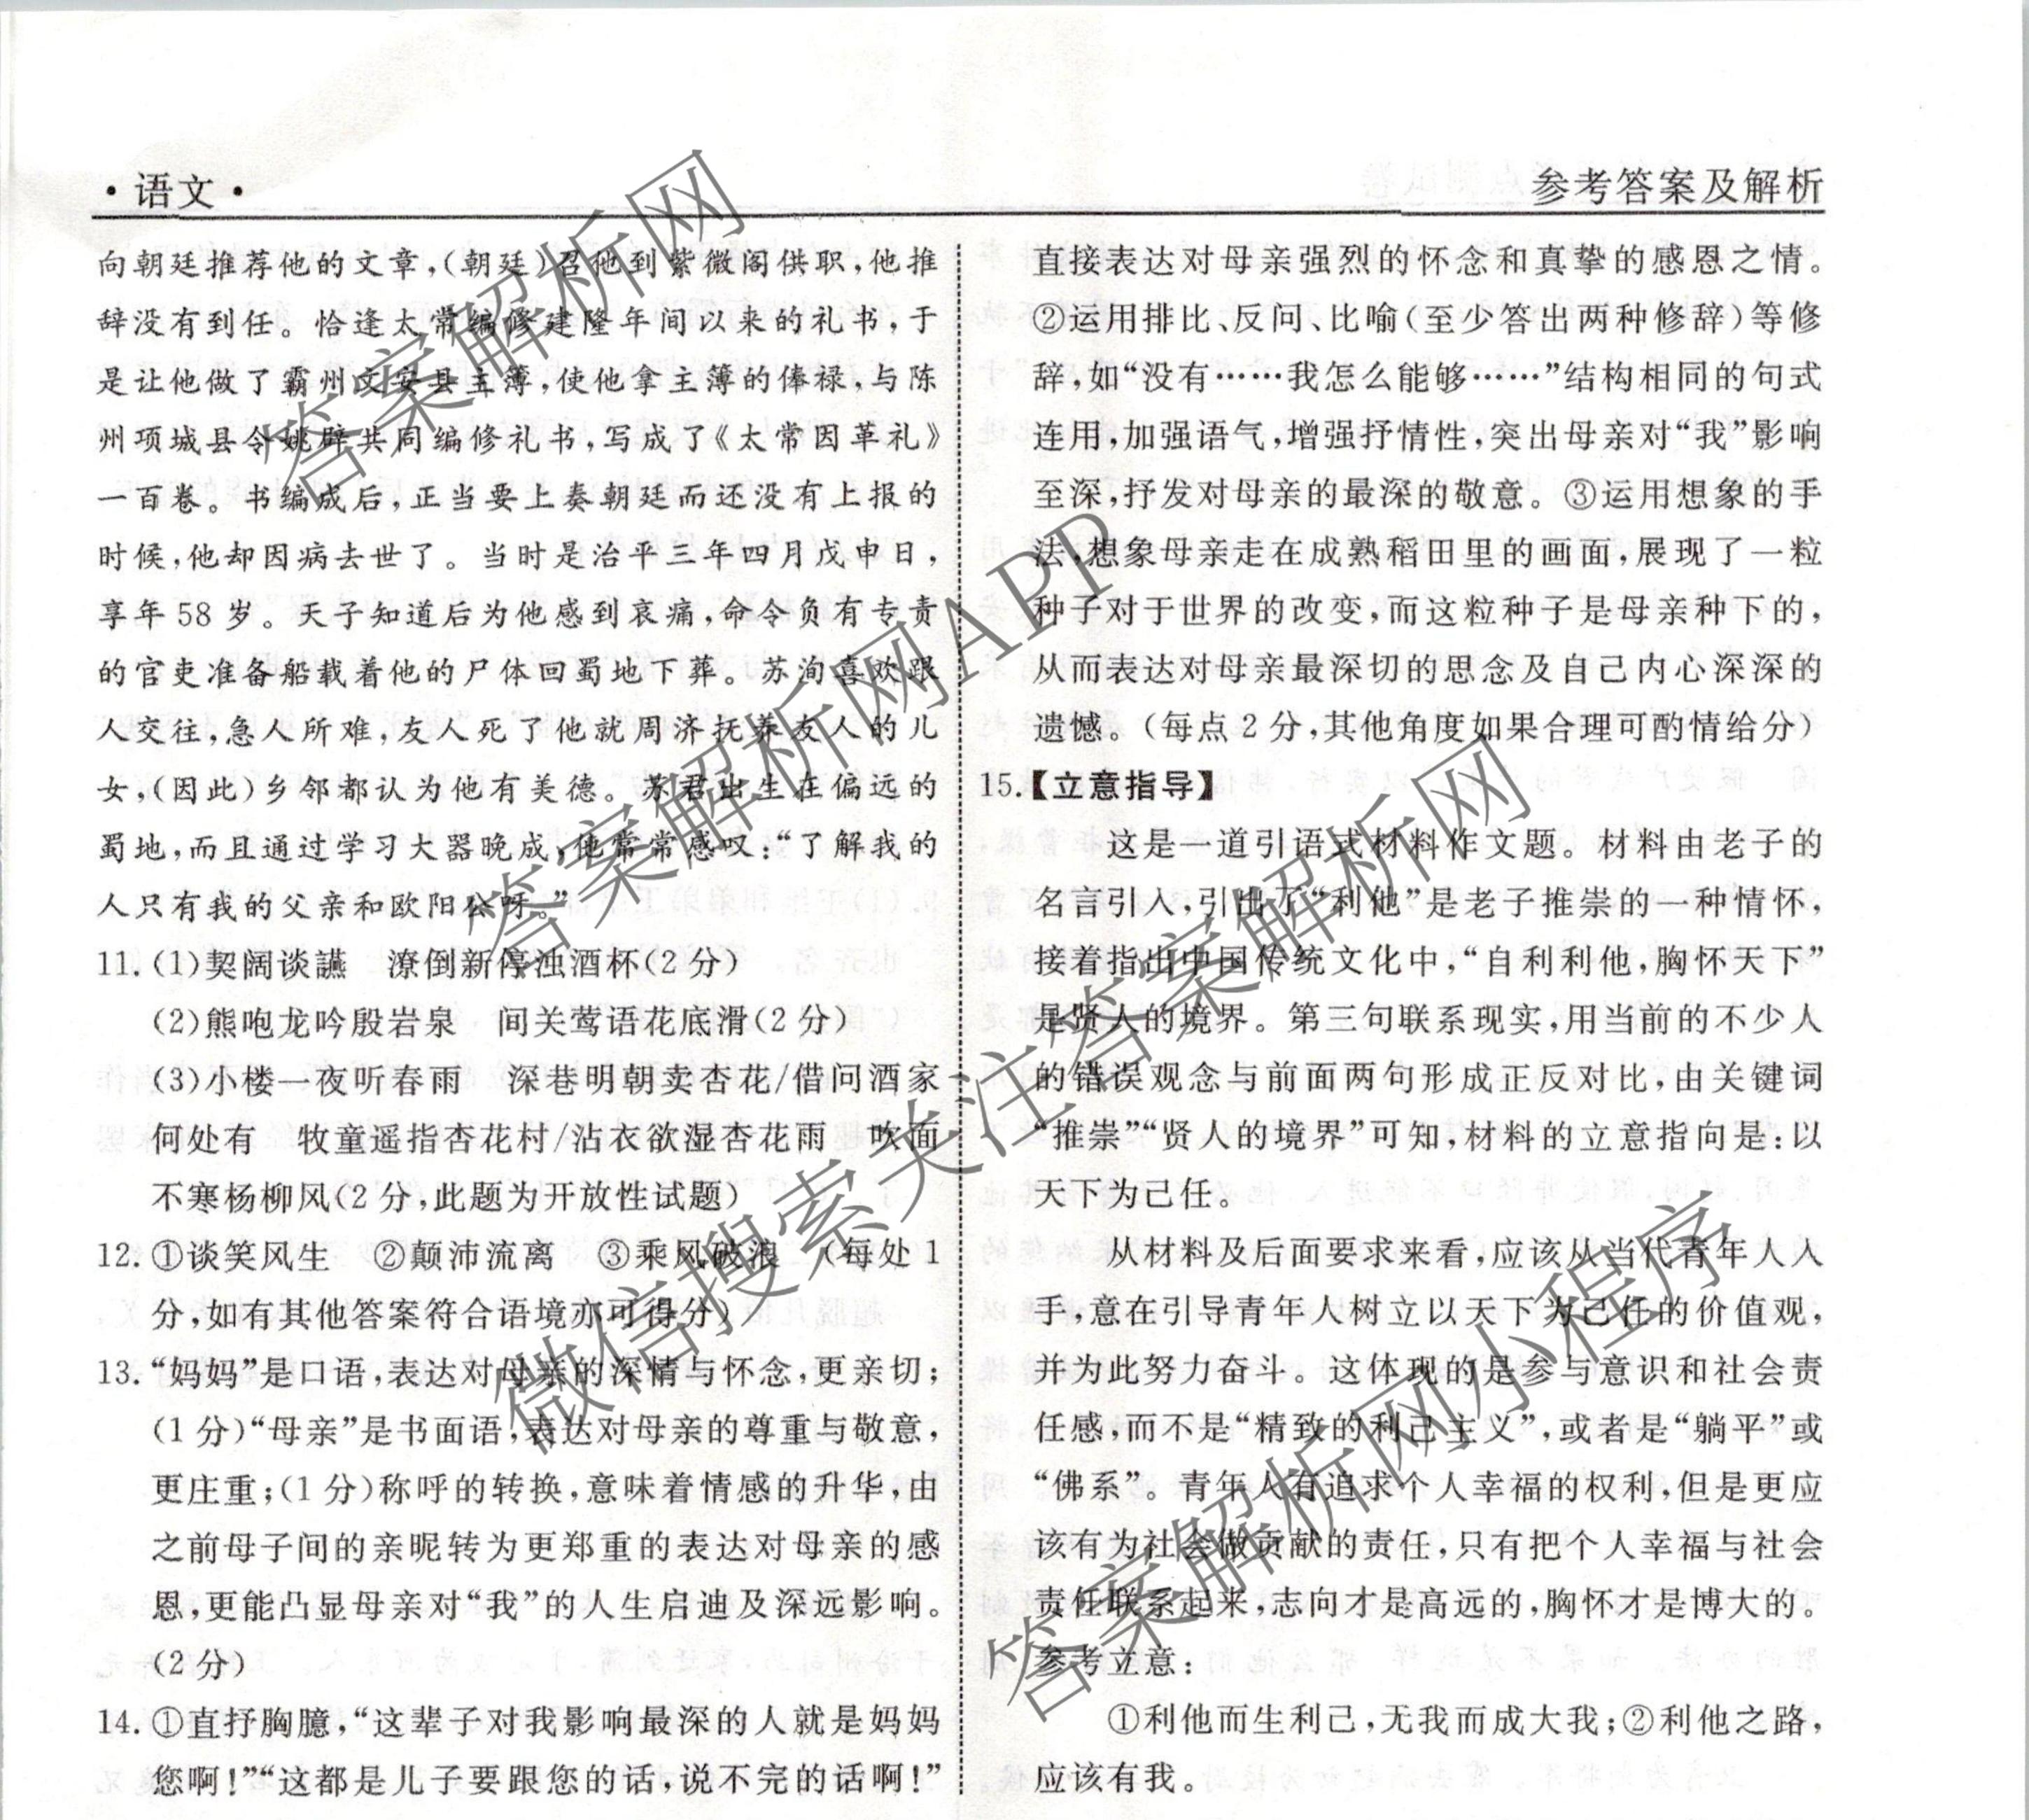 ·语文·
参考答案及解析
向朝廷推荐他的文章,(朝廷)召他到紫微阁供职,他推
辞没有到任。恰逢太常编修建隆年间以来的礼书,于
是让他做了霸州文安县主簿,使他拿主簿的俸禄,与陈
州项城县令姚辟共同编修礼书,写成了《太常因革礼》
一百卷。书编成后,正当要上奏朝廷而还没有上报的
时候,他却因病去世了。当时是治平三年四月戊申日,
享年58岁。天子知道后为他感到哀痛,命令负有专责
的官吏准备船载着他的尸体回蜀地下葬。苏洵喜欢跟
人交往,急人所难,友人死了他就周济抚养友人的儿
女,(因此)乡邻都认为他有美德。苏君出生在偏远的
蜀地,而且通过学习大器晚成,他常常感叹:“了解我的
人只有我的父亲和欧阳公呀。”
11.(1)契阔谈讌 潦倒新停浊酒杯(2分)
(2)熊咆龙吟殷岩泉 间关莺语花底滑(2分)
(3)小楼一夜听春雨 深巷明朝卖杏花/借问酒家
何处有 牧童遥指杏花村/沾衣欲湿杏花雨 吹面
不寒杨柳风(2分,此题为开放性试题)
12.①谈笑风生 ②颠沛流离 ③乘风破浪 (每处1
分,如有其他答案符合语境亦可得分)
13.“妈妈”是口语,表达对母亲的深情与怀念,更亲切;
(1分)“母亲”是书面语,表达对母亲的尊重与敬意,
更庄重;(1分)称呼的转换,意味着情感的升华,由
之前母子间的亲昵转为更郑重的表达对母亲的感
恩,更能凸显母亲对“我”的人生启迪及深远影响。
(2分)
14.①直抒胸臆,“这辈子对我影响最深的人就是妈妈
您啊!”“这都是儿子要跟您的话,说不完的话啊!”
直接表达对母亲强烈的怀念和真挚的感恩之情。
②运用排比、反问、比喻(至少答出两种修辞)等修
辞,如“没有……我怎么能够……”结构相同的句式
连用,加强语气,增强抒情性,突出母亲对“我”影响
至深,抒发对母亲的最深的敬意。③运用想象的手
法,想象母亲走在成熟稻田里的画面,展现了一粒
种子对于世界的改变,而这粒种子是母亲种下的,
从而表达对母亲最深切的思念及自己内心深深的
遗憾。(每点2分,其他角度如果合理可酌情给分)
15.【立意指导】
这是一道引语式材料作文题。材料由老子的
名言引入,引出了“利他”是老子推崇的一种情怀,
接着指出中国传统文化中,“自利利他,胸怀天下”
是贤人的境界。第三句联系现实,用当前的不少人
的错误观念与前面两句形成正反对比,由关键词
“推崇”“贤人的境界”可知,材料的立意指向是:以
天下为己任。
从材料及后面要求来看,应该从当代青年人入
手,意在引导青年人树立以天下为己任的价值观,
并为此努力奋斗。这体现的是参与意识和社会责
任感,而不是“精致的利己主义”,或者是“躺平”或
“佛系”。青年人有追求个人幸福的权利,但是更应
该有为社会做贡献的责任,只有把个人幸福与社会
责任联系起来,志向才是高远的,胸怀才是博大的。
参考立意:
①利他而生利己,无我而成大我;②利他之路,
应该有我。
答案解析网
答案解析网API
微信搜索关注答案解析网
答案解析网小程序